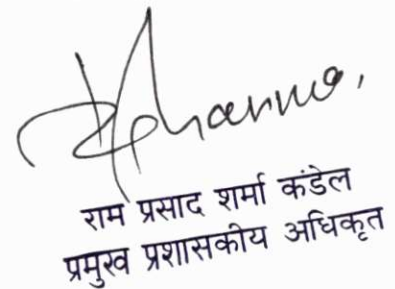 राम प्रसाद शर्मा कंडेल
प्रमुख प्रशासकीय अधिकृत